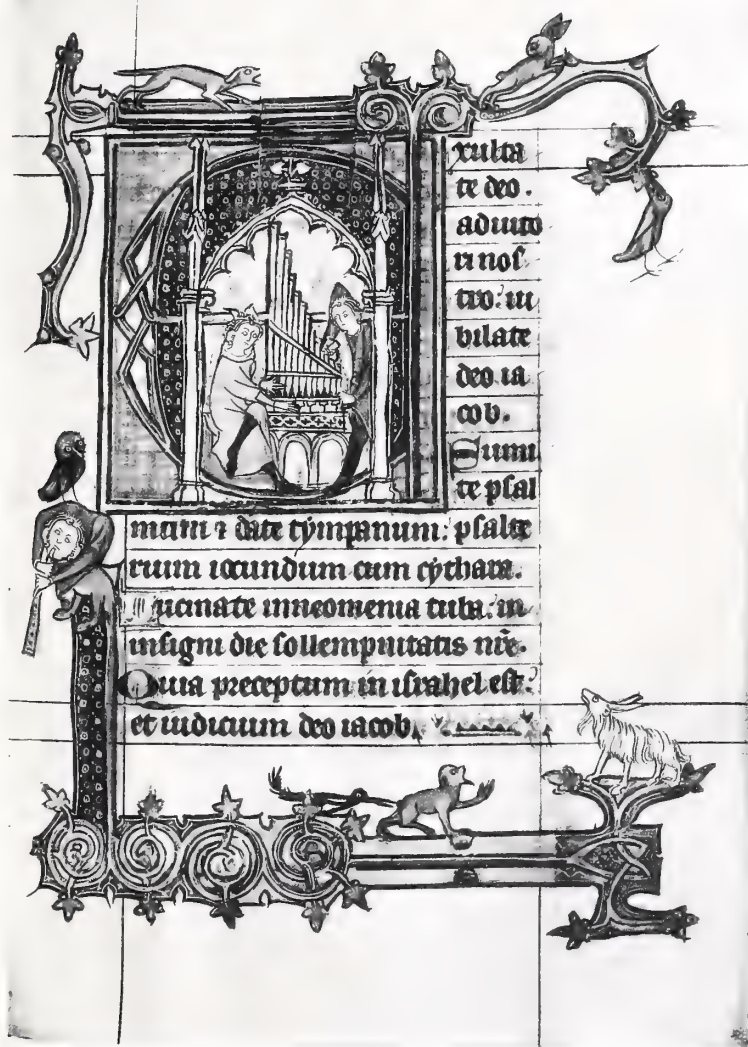 Exulta
te deo.
adiuto
ri nos
tro: iu
bilate
deo ia
cob.
Sumi
te psal
mum ⁊ date tẏmpanum: psalte
rium iocundum cum cẏthara.
ucinate inneomenia tuba: in
insigni die sollempnitatis nr̄e.
Quia preceptum in israhel est:
et iudicium deo iacob.